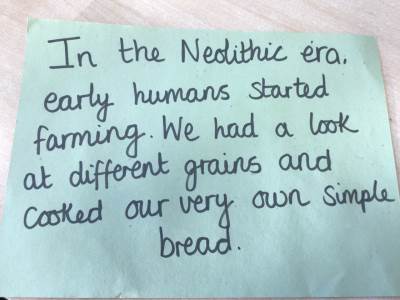 In the Neolithic era,
early humans started
farming. We had a look
at different grains and
cooked our very own simple
bread.